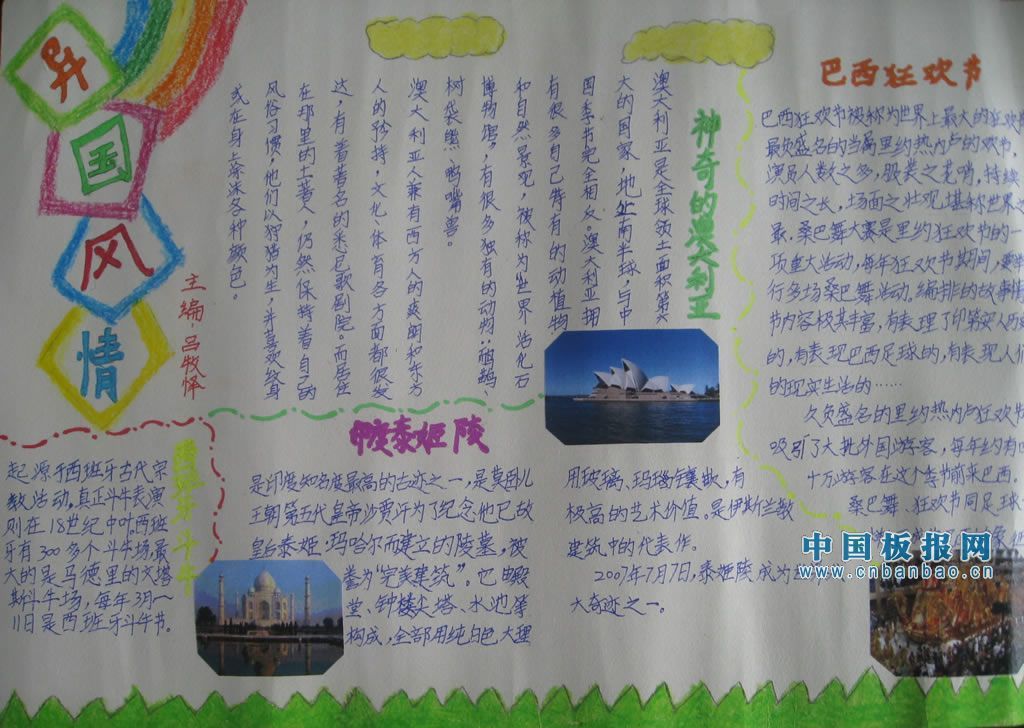 异
国
风
情
主编:吕牧怿
神奇的澳大利亚
澳大利亚是全球领土面积第六
大的国家,地处南半球,与中
国季节完全相反。澳大利亚拥
有很多自己特有的动植物
和自然景观,被称为“世界活化石
博物馆”,有很多独有的动物:鸸鹋、
树袋熊、鸭嘴兽。
澳大利亚人兼有西方人的爽朗和东方
人的矜持,文化、体育各方面都很发
达,有着著名的悉尼歌剧院。而居住
在那里的土著人,仍然保持着自己的
风俗习惯,他们以狩猎为生,并喜欢纹身
或在身上涂抹各种颜色。
巴西狂欢节
巴西狂欢节被称为世界上最大的狂欢
最负盛名的当属里约热内卢的欢节。
演员人数之多,服装之花哨,持续
时间之长,场面之壮观,堪称世界之
最。桑巴舞大赛是里约狂欢节的一
项重大活动,每年狂欢节期间,要举
行多场桑巴舞活动。编排的故事情
节内容极其丰富,有表理了印第安人历史
的,有表现巴西足球的,有表现人们
的现实生活的……
久负盛名的里约热内卢狂欢节
吸引了大批外国游客,每年约有四
十万游客在这个季节前来巴西。
桑巴舞、狂欢节同足球
西班牙斗牛
起源于西班牙古代宗
教活动,真正斗牛表演
则在18世纪中叶。西班
牙有300多个斗牛场,最
大的是马德里的文塔
斯斗牛场,每年3月—
11日是西班牙斗牛节。
印度泰姬陵
是印度知名度最高的古迹之一,是莫卧儿
王朝第五代皇帝沙贾汗为了纪念他已故
皇后泰姬·玛哈尔而建立的陵墓,被
誉为“完美建筑”。它由殿
堂、钟楼、尖塔、水池等
构成,全部用纯白色大理
用玻璃、玛瑙镶嵌,有
极高的艺术价值。是伊斯兰教
建筑中的代表作。
2007年7月7日,泰姬陵成为
大奇迹之一。
中国板报网
www.cnbanbao.cn